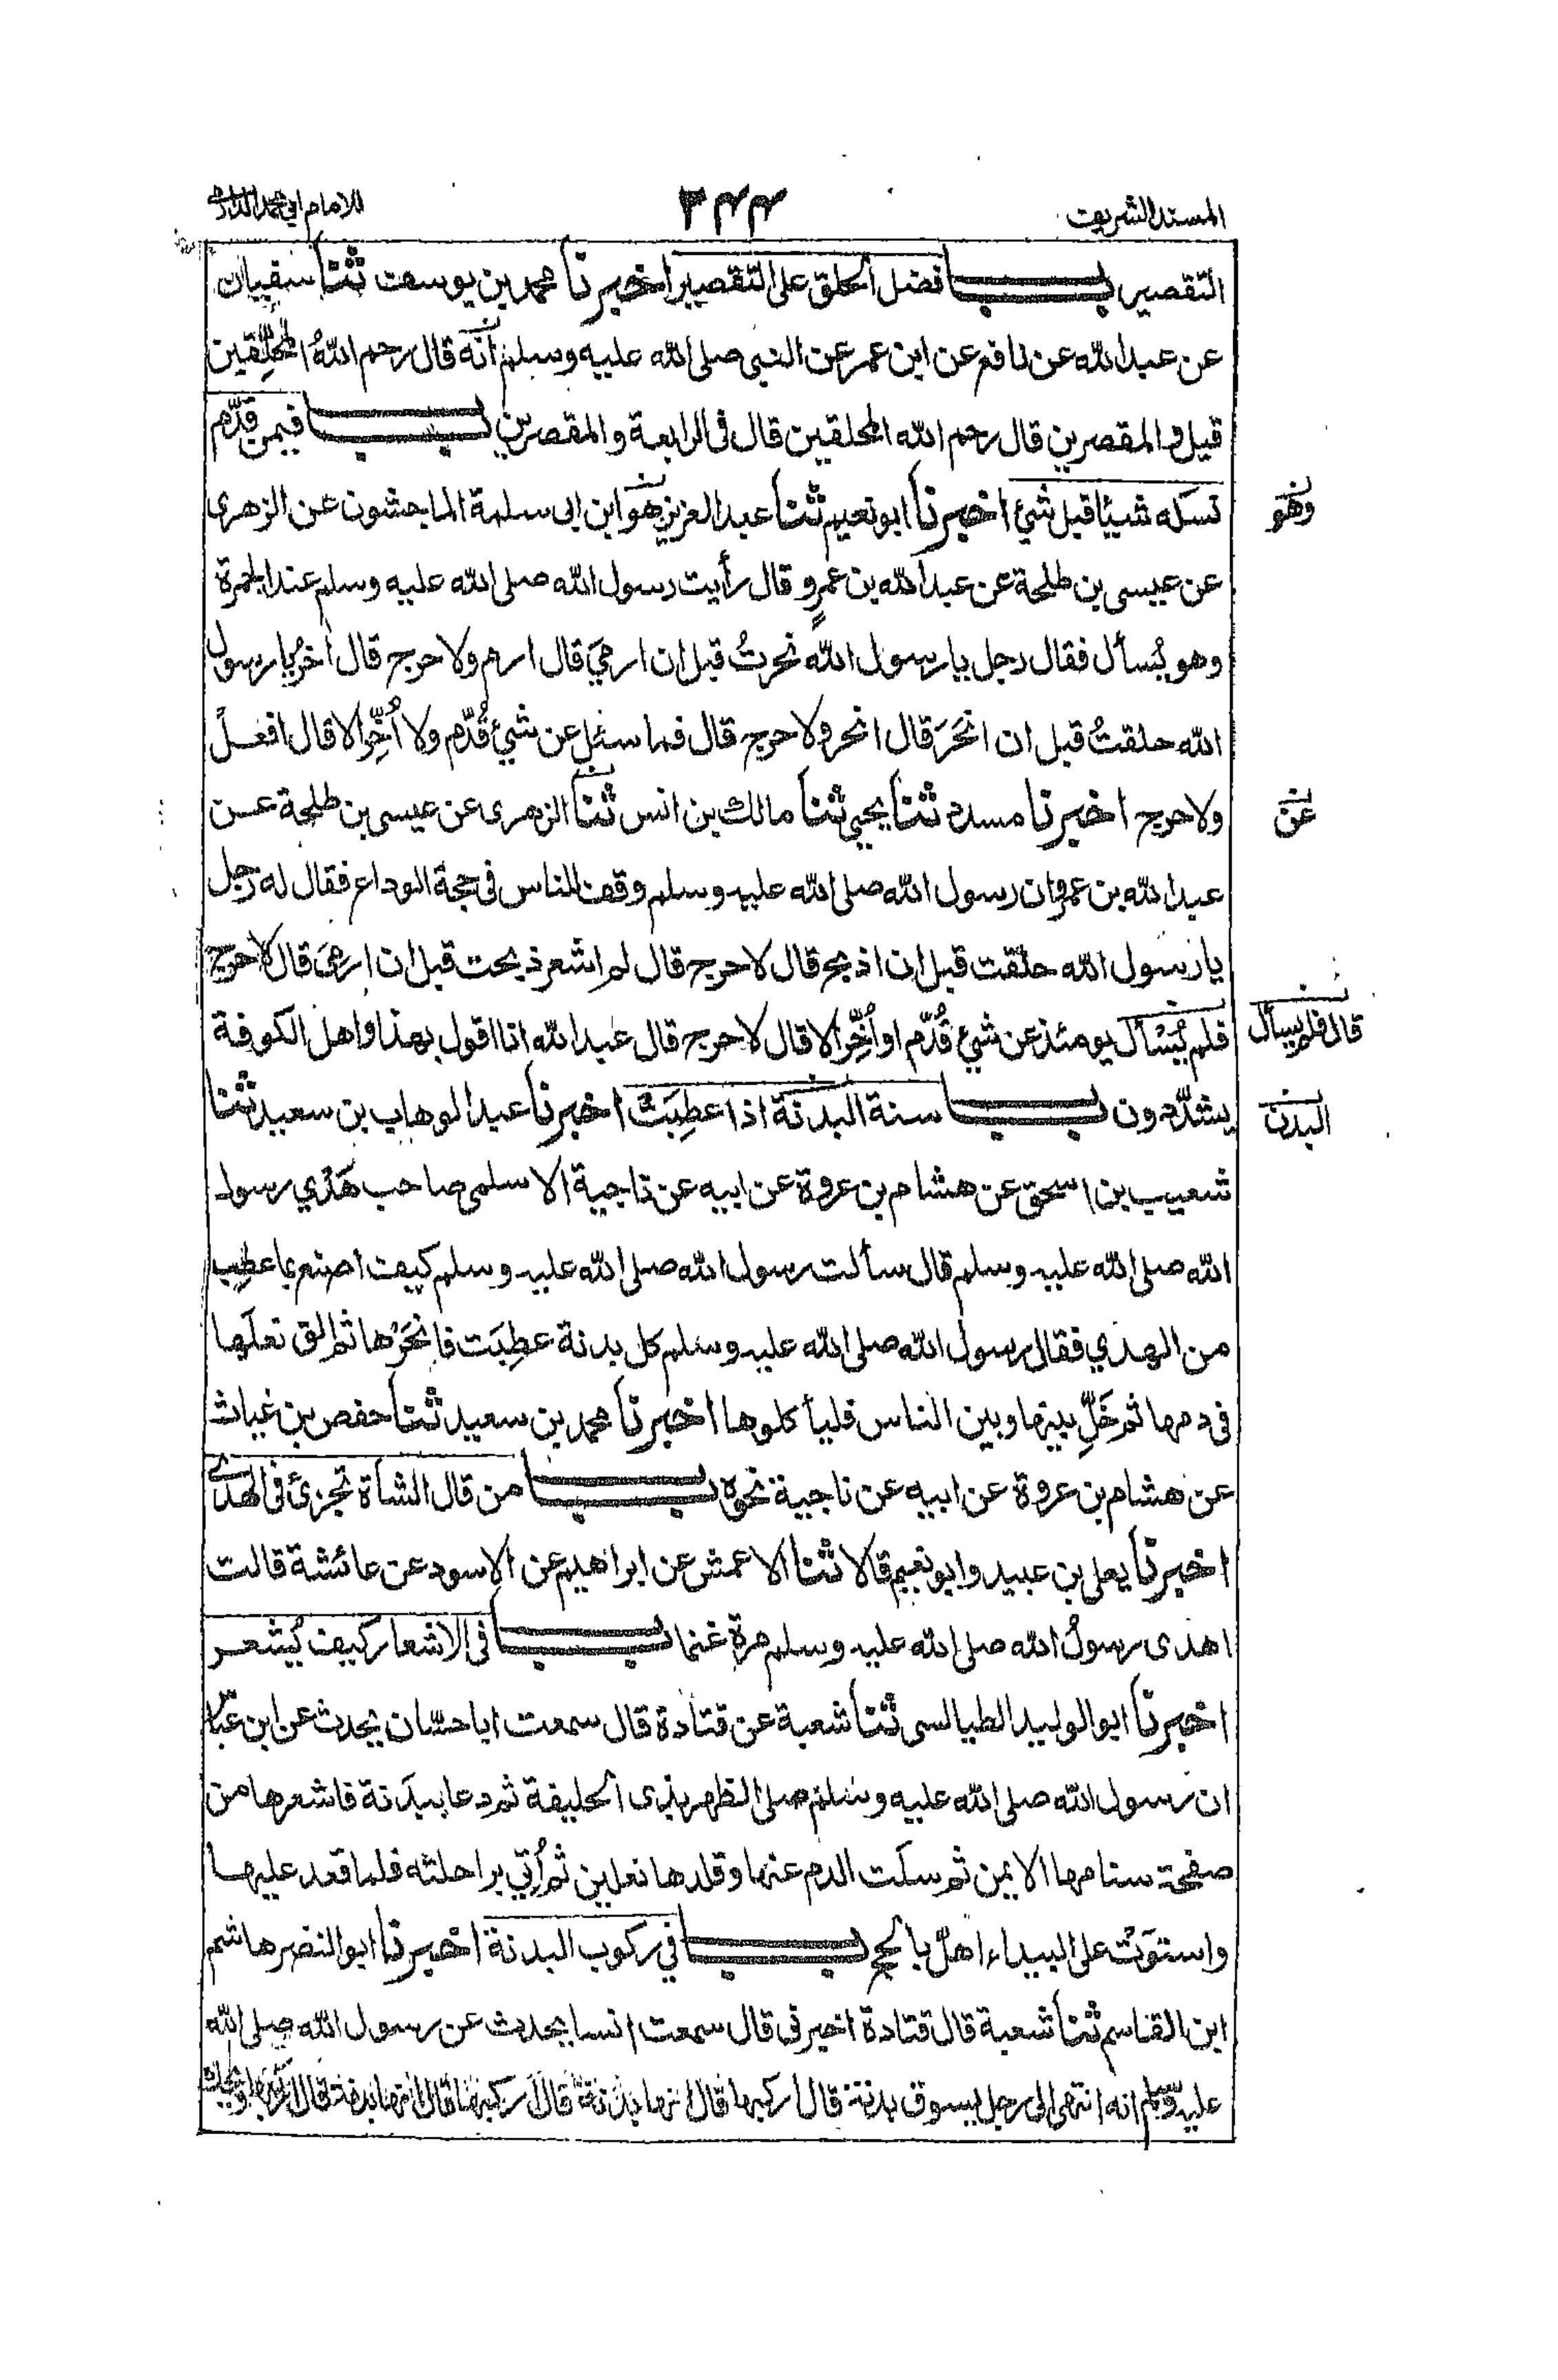 المسند الشريف
٢٤٤
للامام ابي محمد الدارمي
التقصير باب فضل الحلق على التقصير اخبرنا محمد بن يوسف ثنا سفيان
عن عبد الله عن نافع عن ابن عمر عن النبي صلى الله عليه وسلم انه قال رحم اللهُ المحلِّقين
قيل والمقصرين قال رحم الله المحلقين قال فى الرابعة والمقصرين باب فيمن قدّم
نسكه شيئا قبل شئ اخبرنا ابو نعيم ثنا عبد العزيز هو ابن ابى سلمة الماجشون عن الزهرى
وهو
عن عيسى بن طلحة عن عبد الله بن عمرٍو قال رأيت رسول الله صلى الله عليه وسلم عند الجمرة
وهو يُسأل فقال رجل يا رسول الله نحرتُ قبل ان ارميَ قال ارم ولا حرج قال اٰخرُ يا رسول
الله حلقتُ قبل ان انحَرَ قال انحر ولا حرج قال فما سئل عن شئ قُدّم ولا أُخِّر الا قال افعل
ولا حرج اخبرنا مسدد ثنا يحيى ثنا مالك بن انس ثنا الزهرى عن عيسى بن طلحة عن
عن
عبد الله بن عمرو ان رسول الله صلى الله عليه وسلم وقف للناس فى حجة الوداع فقال له رجل
يا رسول الله حلقت قبل ان اذبح قال لا حرج قال لم اشعر ذبحت قبل ان ارميَ قال لا حرج
فلم يُسْأل يومئذ عن شئ قُدّم او أُخِّر الا قال لا حرج قال عبد الله انا اقول بهذا واهل الكوفة
قال فلم يسأل
يشدّدون باب سنة البدنة اذا عطِبَت اخبرنا عبد الوهاب بن سعيد ثنا
البدن
شعيب بن اسحق عن هشام بن عروة عن ابيه عن ناجية الاسلمى صاحب هَدْي رسول
الله صلى الله عليه وسلم قال سألت رسول الله صلى الله عليه وسلم كيف اصنع بما عطِب
من الهدي فقال رسول الله صلى الله عليه وسلم كل بدنة عطِبَت فانحَرْها ثم الق نعلَها
فى دمها ثم خَلِّ بينها وبين الناس فليأكلوها اخبرنا محمد بن سعيد ثنا حفص بن غياث
عن هشام بن عروة عن ابيه عن ناجية نحوه باب من قال الشاة تجزئ فى الهدى
اخبرنا يعلى بن عبيد وابو نعيم قالا ثنا الاعمش عن ابراهيم عن الاسود عن عائشة قالت
اهدى رسولُ الله صلى الله عليه وسلم مرة غنما باب فى الاشعار كيف يُشعر
اخبرنا ابو الوليد الطيالسى ثنا شعبة عن قتادة قال سمعت ابا حسّان يحدث عن ابن عبّاس
ان رسول الله صلى الله عليه وسلم صلى الظهر بذى الحليفة ثم دعا ببدَنة فاشعرها من
صفحة سنامها الايمن ثم سلَت الدم عنها وقلدها نعلين ثم أُتي براحلته فلما قعد عليها
واستوَتْ على البيداء اهلّ بالحج باب في ركوب البدنة اخبرنا ابو النضر هاشم
ابن القاسم ثنا شعبة قال قتادة اخبرنى قال سمعت انسا يحدث عن رسول الله صلى الله
عليه وسلم انه انتهى الى رجل يسوق بدنته قال اركبها قال انها بدنة قال اركبها قال انها بدنة قال اركبها ويحك